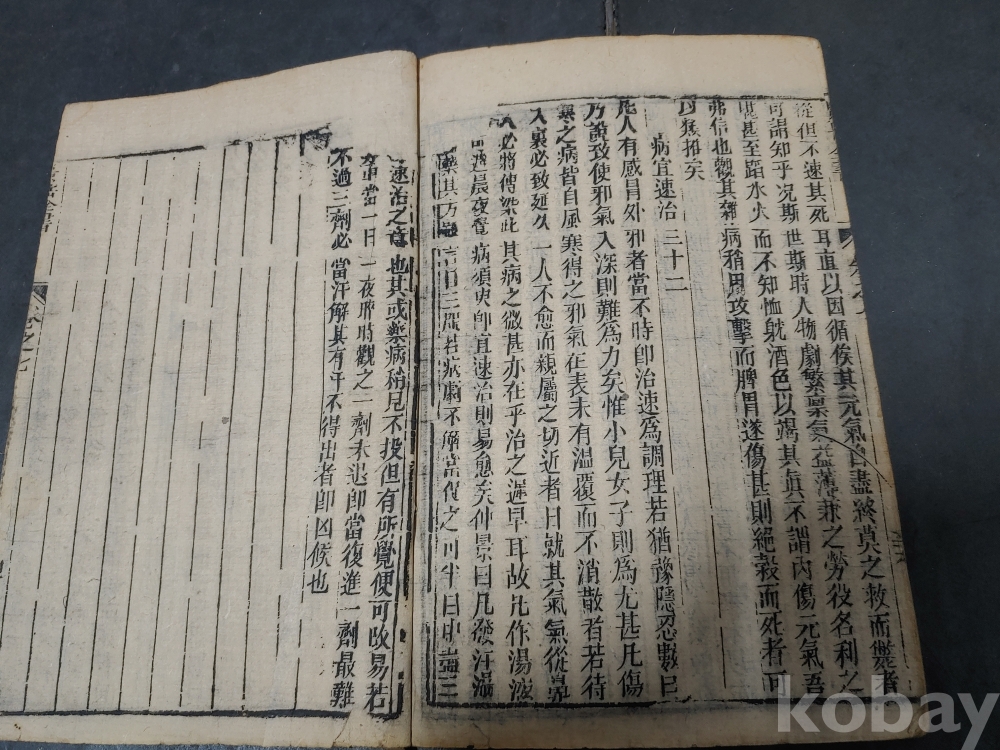 從但不速其死耳直以因循俟其元氣自盡終莫之救而斃者
可謂知乎况斯世斯時人物劇繁稟氣益薄兼之勞役名利之
甚至蹈水火而不知恤躭酒色以竭其真不謂內傷元氣吾
弗信也觀其雜病稍用攻擊而脾胃遂傷甚則絕穀而死者可
以類推矣
病宜速治三十二
凡人有感冒外邪者當不時即治速為調理若猶豫隱忍數日
乃說致使邪氣入深則難為力矣惟小兒女子則為尤甚凡傷
寒之病皆自風寒得之邪氣在表未有溫覆而不消散者若待
入裏必致延久一人不愈而親屬之切近者日就其氣氣從鼻
入必將傳染此其病之微甚亦在乎治之遲早耳故凡作湯液
晨夜覺病須臾即宜速治則易愈矣仲景曰凡發汗溫
藥其方雖言日三服若病劇不解當促之可半日中盡三
速治之意也其或藥病稍見不投但有所覺便可改易若
當一日一夜時觀之一劑未退即當復進一劑最難
不過三劑必當汗解其有汗不得出者即凶候也
kobay